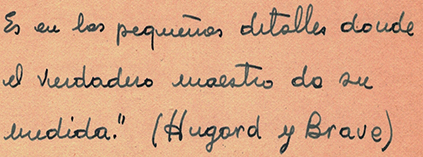 Es en los pequeños detalles donde
el verdadero maestro da su
medida." (Hugard y Braue)